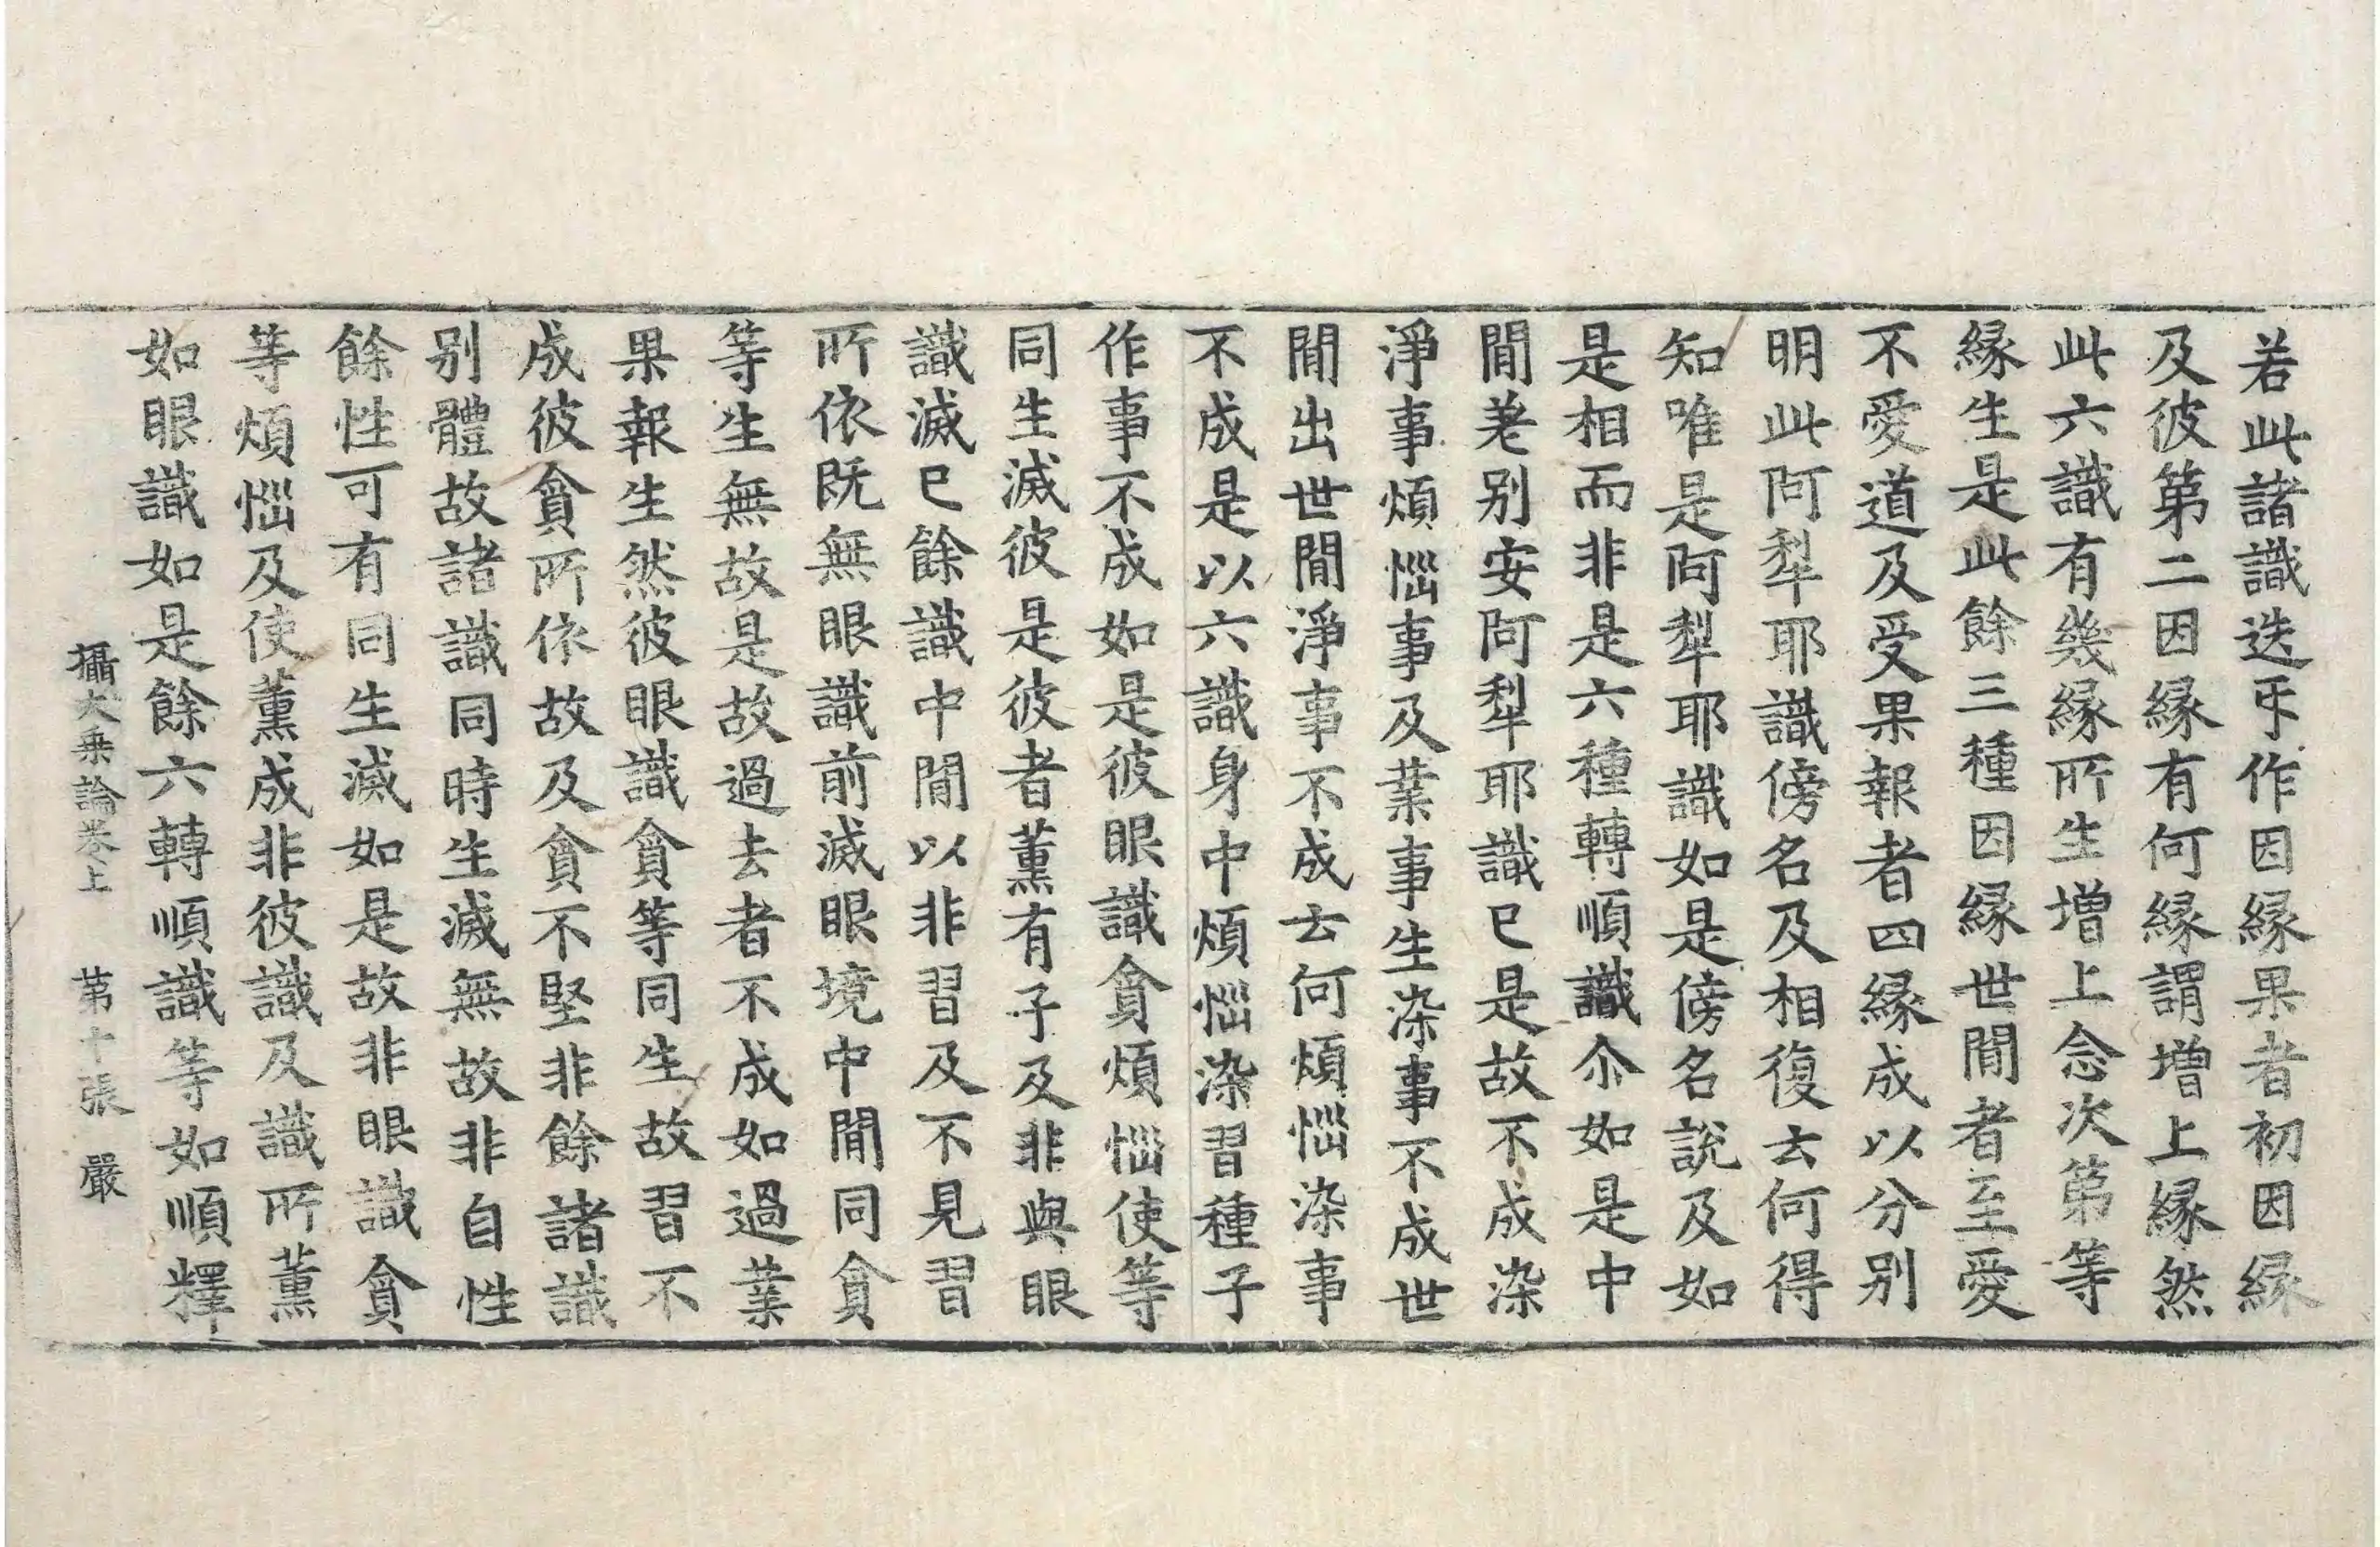 若此諸識迭㸦作因縁果者初因縁
及彼第二因縁有何縁謂増上縁然
此六識有幾縁所生増上念次第等
縁生是此餘三種因縁世閒者至愛
不愛道及受果報者四縁成以分別
明此阿犁耶識傍名及相復去何得
知唯是阿犁耶識如是傍名説及如
是相而非是六種轉順識尒如是中
閒差别安阿犁耶識已是故不成染
淨事煩惱事及業事生染事不成世
閒出世閒淨事不成去何煩惱染事
不成是以六識身中煩惱染習種子
作事不成如是彼眼識貪煩惱使等
同生滅彼是彼者薫有子及非與眼
識滅已餘識中閒以非習及不見習
所依既無眼識前滅眼境中閒同貪
等生無故是故過去者不成如過業
果報生然彼眼識貪等同生故習不
成彼貪所依故及貪不堅非餘諸識
別體故諸識同時生滅無故非自性
餘性可有同生滅如是故非眼識貪
等煩惱及使薫成非彼識及識所薫
如眼識如是餘六轉順識等如順釋
攝大乗論卷上 第十張 嚴